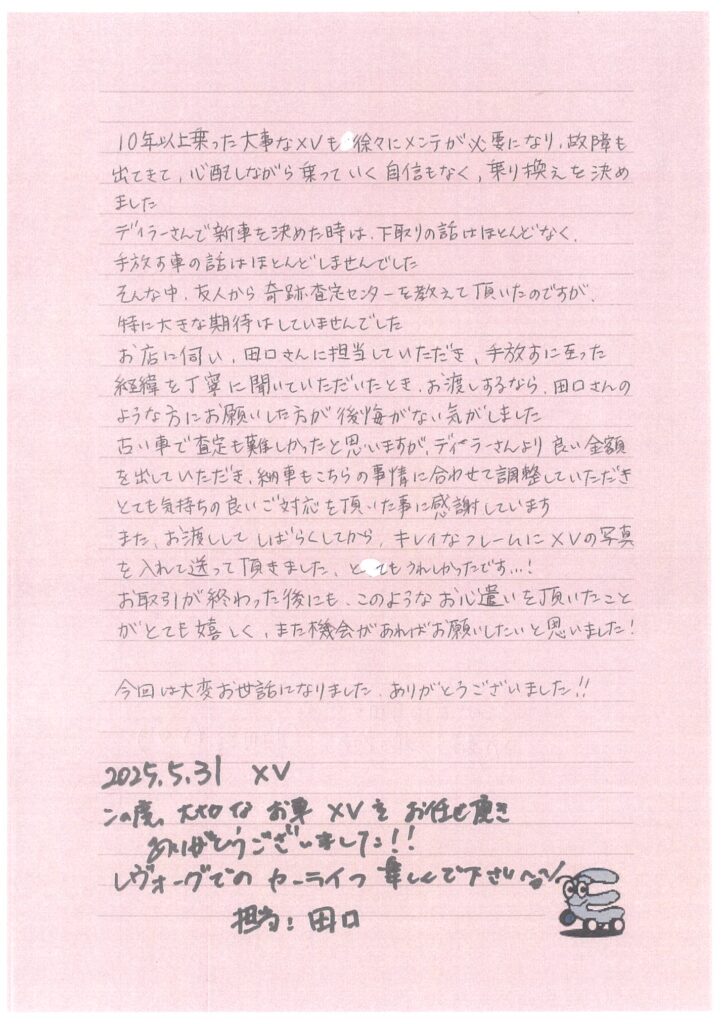 10年以上乗った大事なXVも徐々にメンテが必要になり、故障も
出てきて、心配しながら乗っていく自信もなく、乗り換えを決め
ました
ディラーさんで新車を決めた時は、下取りの話はほとんどなく、
手放す車の話はほとんどしませんでした
そんな中、友人から奇跡査定センターを教えて頂いたのですが、
特に大きな期待はしていませんでした
お店に伺い、田口さんに担当していただき、手放すに至った
経緯を丁寧に聞いていただいたとき、お渡しするなら、田口さんの
ような方にお願いした方が後悔がない気がしました
古い車で査定も難しかったと思いますが、ディーラーさんより良い金額
を出していただき、納車もこちらの事情に合わせて調整していただき
とても気持ちの良いご対応を頂いた事に感謝しています
また、お渡ししてしばらくしてから、キレイなフレームにXVの写真
を入れて送って頂きました、とてもうれしかったです…!
お取引が終わった後にも、このようなお心遣いを頂いたこと
がとても嬉しく、また機会があればお願いしたいと思いました!
今回は大変お世話になりました、ありがとうございました!!
2025.5.31 XV
この度、大切なお車XVをお任せ頂き
ありがとうございました!!
レヴォーグでのカーライフ楽しんで下さい〜
担当:田口